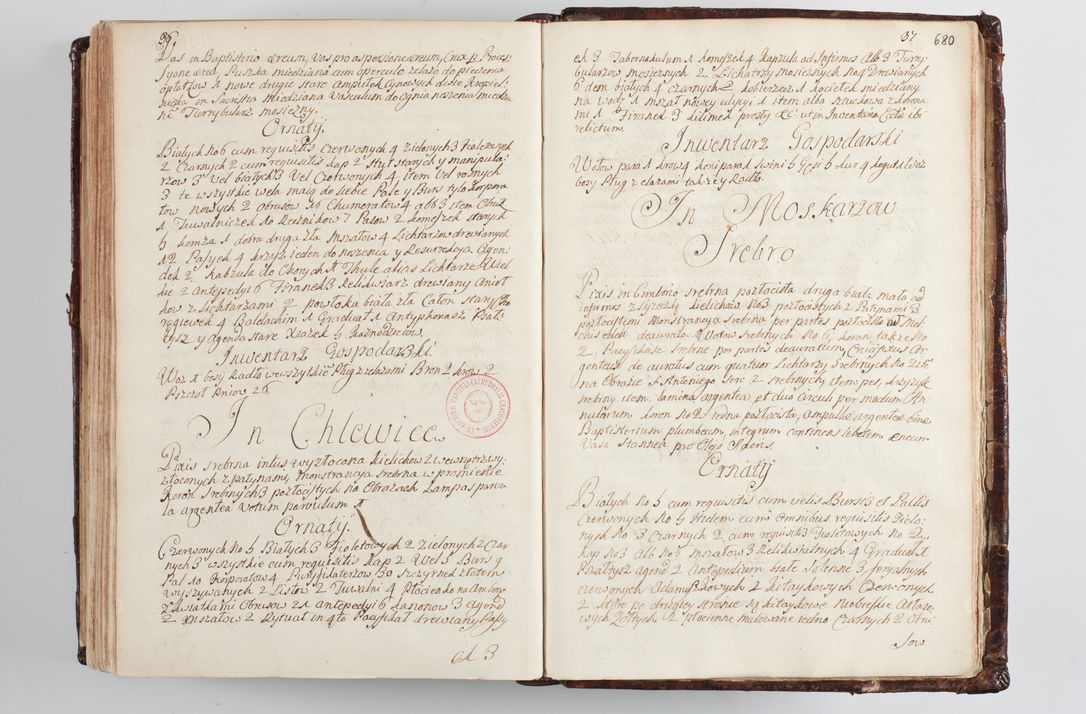 Vas in Baptisterio æreum, Vas pro aspersione æreum, Crux p. Proces
syone ærea, Puszka miedziana cum operculo zelazo do pieczenia
opłatkow 1 nowe drugie stare Ampułek Cynowych
w Sacrystii miedziana Vasculum do Ognia noszenia miedzia
ne Turrybularz mosiezny
Ornaty.
Białych No 6 cum requisitis Czerwonych 4 Zielonych 3 Fioletowych
2 Czarnych 2 cum requisitis Kap 2 Stuł starych y manipula-
rzow 3 Vel białych 3 Vel Czerwonych 4, item Vel roznych
3 te wszystkie wela maią do siebie Palle y Burs tylo Korpora
łow nowych 2 obrusow 30 Chumerałow 4 alb 3 item
1 Tuwalniczek No Ręcznikow 7 Pasow 2 komeszek starych
6 komza 1 dobra druga zła Mszałow 4 Lichtarzow drewnianych
12 Pasyek 4 krzyz ieden do noszenia y Resurrekcya Agen-
dek 2 Kapsula do Chorych 1 Thule alias Lichtarze
kie 2 antepedys 6 Firanek 3 Relikwiarz drewniany
kow z Lichtarzami 2 powłoka biała zła Całon stary
rągiewek 4 Baldachim 1 Graduał 1 Antyphonarz Psał
tysz y Agenda stare Xiązek 6 Kaznodzieiow
Inwentarz Gospodarski.
Woz 1 bosy Radło we wszystkie Pług z zelazami Bron 2 krow 2
Pszczoł pniow 26
In Chlewice
Pixis srebrna intus wyzłocona Kielichow 2 wewnątrz wy-
złoconych z patynami, Monstrancya srebrna w promienie
Koron Srebrnych 3 pozłocistych na Obrazach Lampas parvu
la argentea votum parvulum 1
Ornaty.
Czerwonych No 5 Białych 3 Fioletowych 2 Zielonych 2 Czar-
nych 3 wszystkie cum requisitis Kap 2 Vel 5 Burs 9
Pal 10 Korporałow 4 Puryfikaterzow 30 szczyrnem złotem
wyszywanych 2 Listow 2 Tuwalni 4 Płocienko na Ambone
z kwiatkami Obrusow 21 antepedys 6 kanonow 3 agend
2 Mszałow 2 Rytuał in 4to Pacyfikał drewniany Pasyy
ek 3
37 680
ek 3 Tabernakulum 1 komeszek 4 Kapsula ad Infirmos Alb 3 Turry
bularzow mosieznych 2 Lichtarzy mosieznych nog Drewnianych
6 item białych 4 czarnych 2 kobierzec 1 kociełek miedziany
na wodę 1 mszał nowey edycyi 1 item alba szuchowa z korona
mi 1 Firanek 3 Kilimek prosty &c. ut in Inventario Ecclæ ibi
relictum.
Inwentarz Gospodarski
Wołow para 1 krow 4 koni para 1 Swini 6 Gęsi 6 kur 4 kogut 1 Woz
bosy Pług z elazami takze y Radło.
In Moskarzow
Srebro
Pixis in Cimborio srebrna pozłocista druga biała mała ad
infirmos z Kielichow No 3 pozłocistych z Patynami 3
pozłocistemi Monstrancya srebrna per partes pozłocista
Wotow srebrnych No 6, koron takze No
2, Pacyfikale srebrne per partes deauratum, Crucifixus Ar-
genteus de auratus cum quatuor Lichtarzy srebrnych No
na Obrazie S. Antoniego Serc 2 srebrnych, item pes, krzyzyk
srebrny item lamina argentea et duo circuli per modum An-
nulorum koron No 2 iedna pozłocista, ampullæ argenteæ binæ
Baptisterium plumbeum, integrum continens lebetem æneum
Vasa stannea pro Oleis Sacris.
Ornaty
Białych No 5 cum requisitis cum velis Bursis et Pallis
Czerwonych No 5 Itidem cum Omnibus requisitis Zielo-
nych No 3 Czarnych 2 cum requisitis Fioletowych No 2
kap No 3 Alb No 8 Mszałow 3 Relikwialnych 4 Graduał 1
Psałtysz agend 2 Antepedium białe Solenne
czerwonych Adamaszkowych 2 Kitaykowych Czerwonych
2 ktore po drugiey stronie są kitaykowe Niebieskie Atłaso-
wych żołtych 2 Płocienne malowane iedno Czarnych 2 Obru
sow